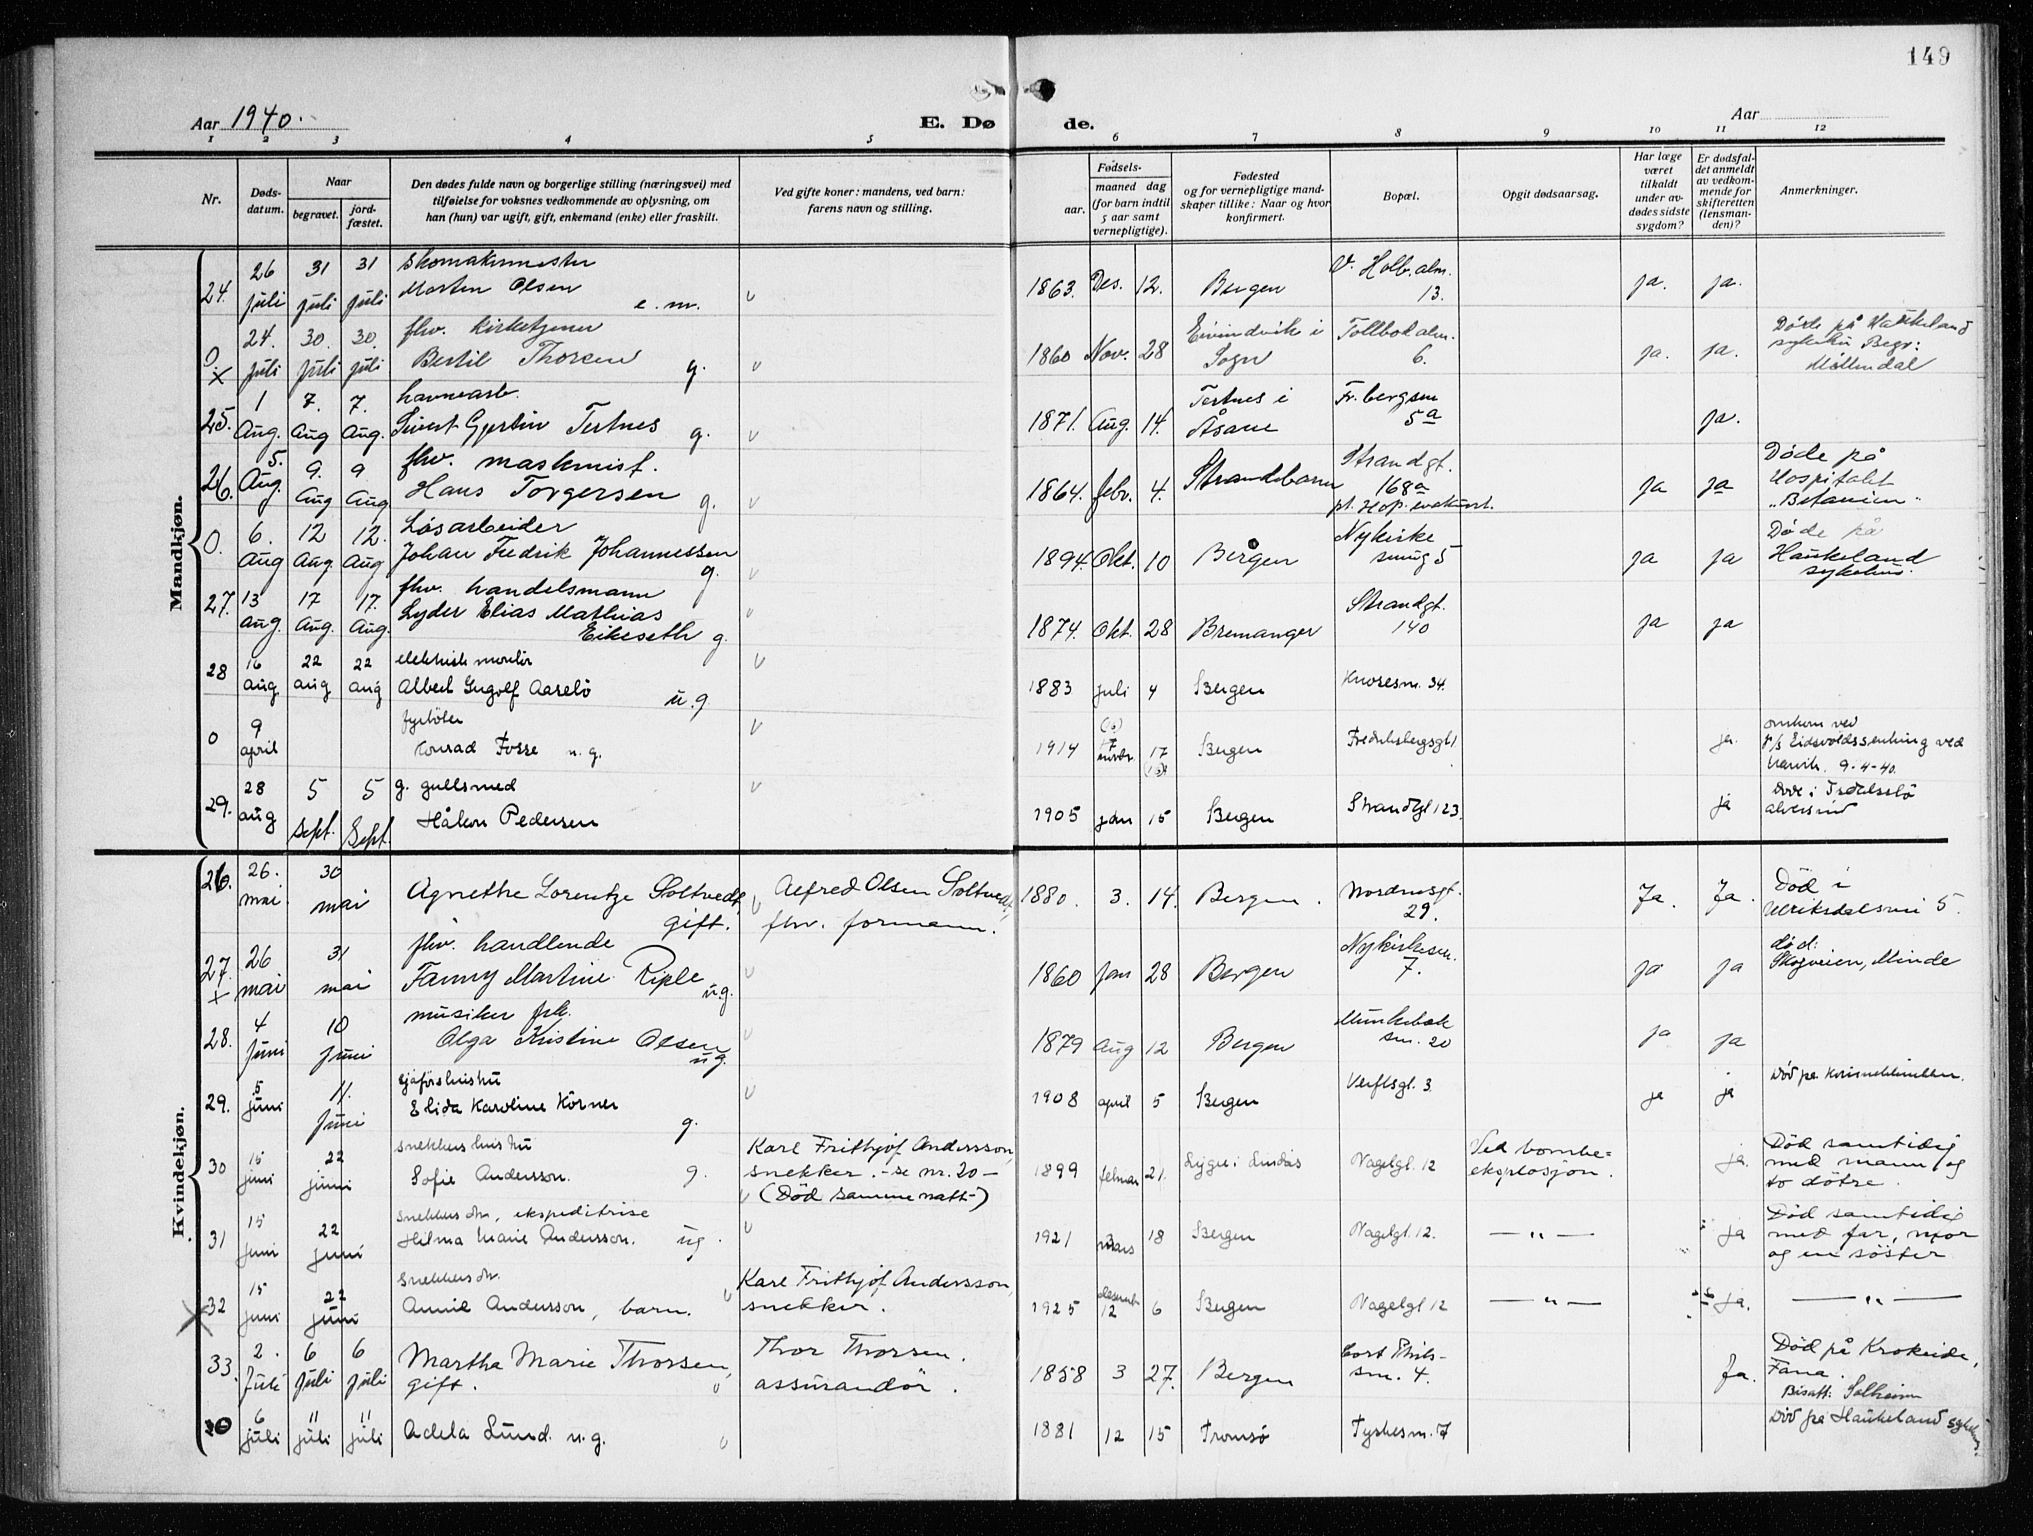 149
Aar 1940.
E. Dø de.
Aar
1 2 3 4 5 6 7 8 9 10 11 12
Nr.
Døds-
datum.
Naar
begravet.
jord-
fæstet.
Den dødes fulde navn og borgerlige stilling (næringsvei) med
tilføielse for voksnes vedkommende av oplysning, om
han (hun) var ugift, gift, enkemand (enke) eller fraskilt.
Ved gifte koner: mandens, ved barn:
farens navn og stilling.
Fødsels-
aar.
maaned dag
(for barn indtil
5 aar samt
vernepligtige).
Fødested
og for vernepligtige mand-
skaper tillike: Naar og hvor
konfirmert.
Bopæl.
Opgit dødsaarsag.
Har læge
været
tilkaldt
under av-
dødes sidste
sygdom?
Er dødsfal-
det anmeldt
av vedkom-
mende for
skifteretten
(lensman-
den)?
Anmerkninger.
Mandkjøn.
24. 26 juli 31 juli 31 juli skomakermester
Morten Olsen e.m. 1863. Des. 12. Bergen V. Holb.alm.
13. ja. ja.
0. x 24. juli 30. juli 30. juli fhv. kirketjener
Bertil Thorsen g. 1860 Nov. 28 Eivindvik i
Sogn Tollbod alm.
6. ja. ja. Døde på Haukeland
sykehus Begr:
Møllendal
25. 1 Aug. 7. Aug 7. Aug. havnearb.
Sivert Gjertin Tertnes g. 1871. Aug. 14. Tertnes i
Åsane Fr.bergsm
5a ja.
26. 5. Aug. 9. Aug 9 Aug fhv. maskinist.
Hans Torgersen g. 1864. febr. 4. Strandebarm Strandgt.
168a ja ja Døde på
Hospitalet
"Betanien"
0. 6. Aug 12 Aug 12. Aug Løsarbeider
Johan Fredrik Johannessen g. 1894. Okt. 10 Bergen Nykirke
smug 5 ja ja Døde på
Haukeland
sykehus.
27. 13 aug. 17 Aug. 17. Aug. fhv. handelsmann
Lyder Elias Mathias
Eikeseth g. 1874. Okt. 28 Bremanger Strandgt.
140 ja ja
28 16 aug 22 aug 22 aug elektrisk montør
Albert Ingolf Aaselö u.g 1883 juli 4 Bergen Knøsesm. 34.
0 9 april fyrböter
Konrad Fosse u.g. 1914 17 Bergen Fredriksbergsgt 1 ja. omkom ved
Eidsvoldssenkning ved
Narvik. 9-4-40.
29. 28 aug 5 sept. 5 Sept. g. gullsmed
Håkon Pedersen 1905 jan 15 Bergen Strandgt 123. ja Döde i
Kvindekjøn.
26. 26. mai. 30 mai Agnethe Lorentze Soltvedt,
gift. Alfred Olsen Soltvedt,
fhv. formann. 1880. 3. 14. Bergen. Nordnesgt.
29. Ja. Ja. Död i
Ulriksdalsvei 5.
27. x 26 mai 31 mai fhv. handlende
Fanny Martine Riple u.g. 1860 Jan 28 Bergen Nykirkesm.
7. ja ja död:
Skogveien, Minde
28. 4 Juni 10 Juni musiker frk.
Olga Kristine Olsen u.g. 1879 Aug 12 Bergen Munkebæk
sm. 20 ja ja
29. 5 juni 11. Juni sjåförs hustru
Elida Karoline Körner g. 1908 april 5 Bergen Verftsgt. 3 ja ja Död på
30 15 juni 22 juni snekkers hustru
Sofie Andersson. g. Karl Frithjof Andersson,
snekker. - se nr. 20 -
(Död samme natt-) 1899 februar 21. Lygre i Lindås Nagelgt. 12 Ved bombe-
eksplosjon. ja. Död samtidig
med mann og
to dötre.
31 15 juni 22 juni snekkers dtr., ekspeditrise
Hilma Marie Andersson. ug. 1921 mars 18 Bergen Nagelgt. 12. — " — ja Död samtidig
med far, mor
og en söster
x 32 15 juni 22 juni snekkers dtr.
Annie Andersson, barn. Karl Frithjof Andersson,
snekker. 1925 desember
12 6 Bergen Nagelgt 12 — " — ja. — " —
33. 2. Juli 6 juli 6 juli Martha Marie Thorsen,
gift. Thor Thorsen.
assurandör. 1858 3 27. Bergen Cort
sm. 4. Ja. Död på Krokeide,
Fana.
Bisatt: Solheim
0 6 juli 11 juli 11 juli Adela Lund. u.g. 1881 12 15 Tromsö Tyskesm. 7 Död på Haukeland sykehus.